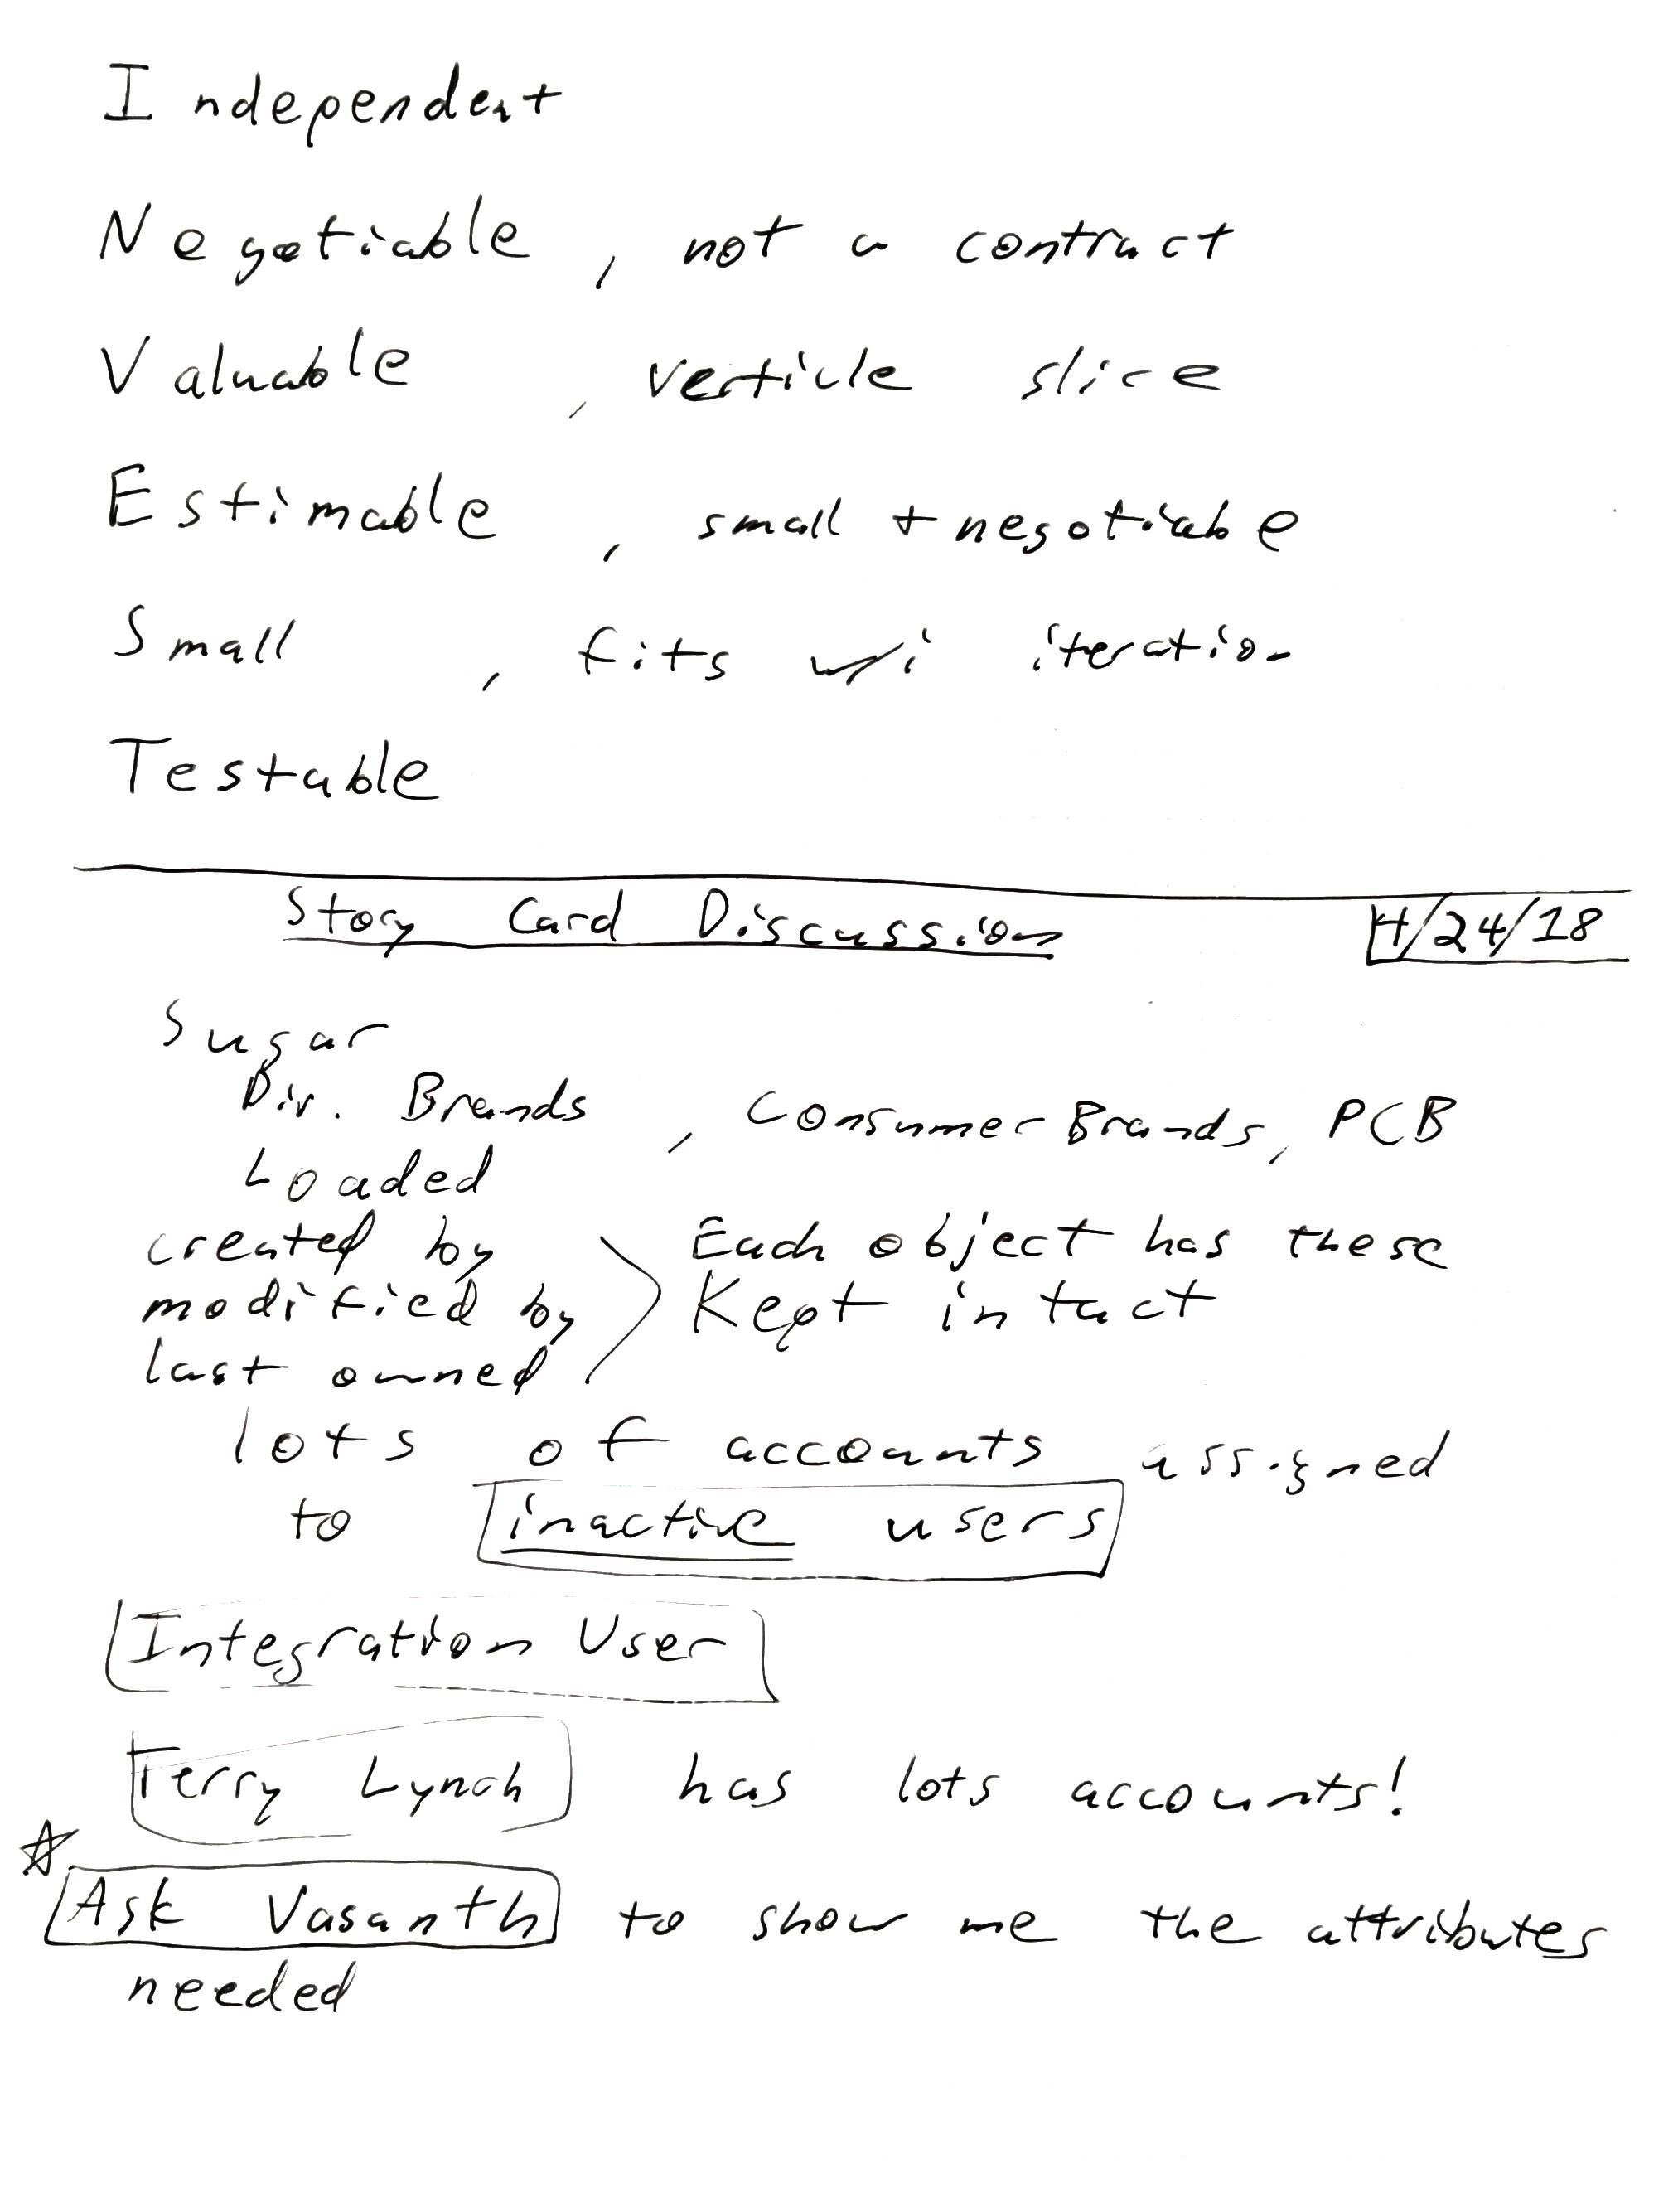 Independent
Negotiable, not a contract
Valuable, verticle slice
Estimable, small + negotiable
Small, fits w/i iteration
Testable
Story Card Discussion 4/24/18
Sugar
Div. Brands, Consumer Brands, PCB
Loaded
created by Each object has these
modified by Kept intact
last owned
lots of accounts assigned
to inactive users
Integration User
Terry Lynch has lots accounts!
Ask Vasanth to show me the attributes
needed